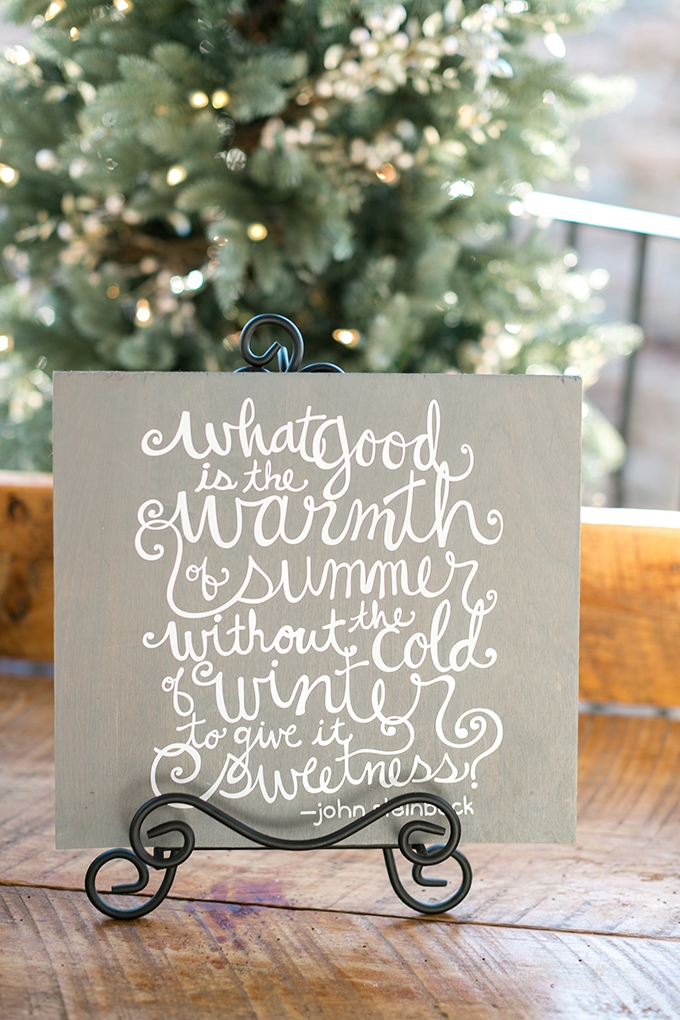 what good
is the
warmth
of summer
without the
cold
of winter
to give it
sweetness?
—john steinbeck